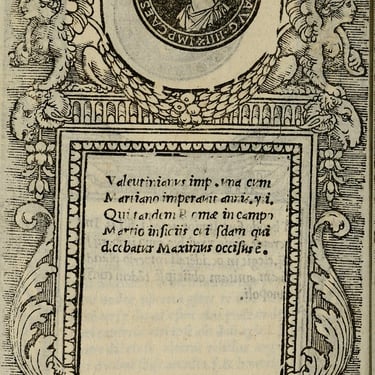 AVG IIII IMP CAES
Valeutinianus imp. una cum
Martiano imperauit annis. vi.
Qui tandem Romæ in campo
Martio insidiis cuiusdam qui
dicebatur Maximus occisus ē.